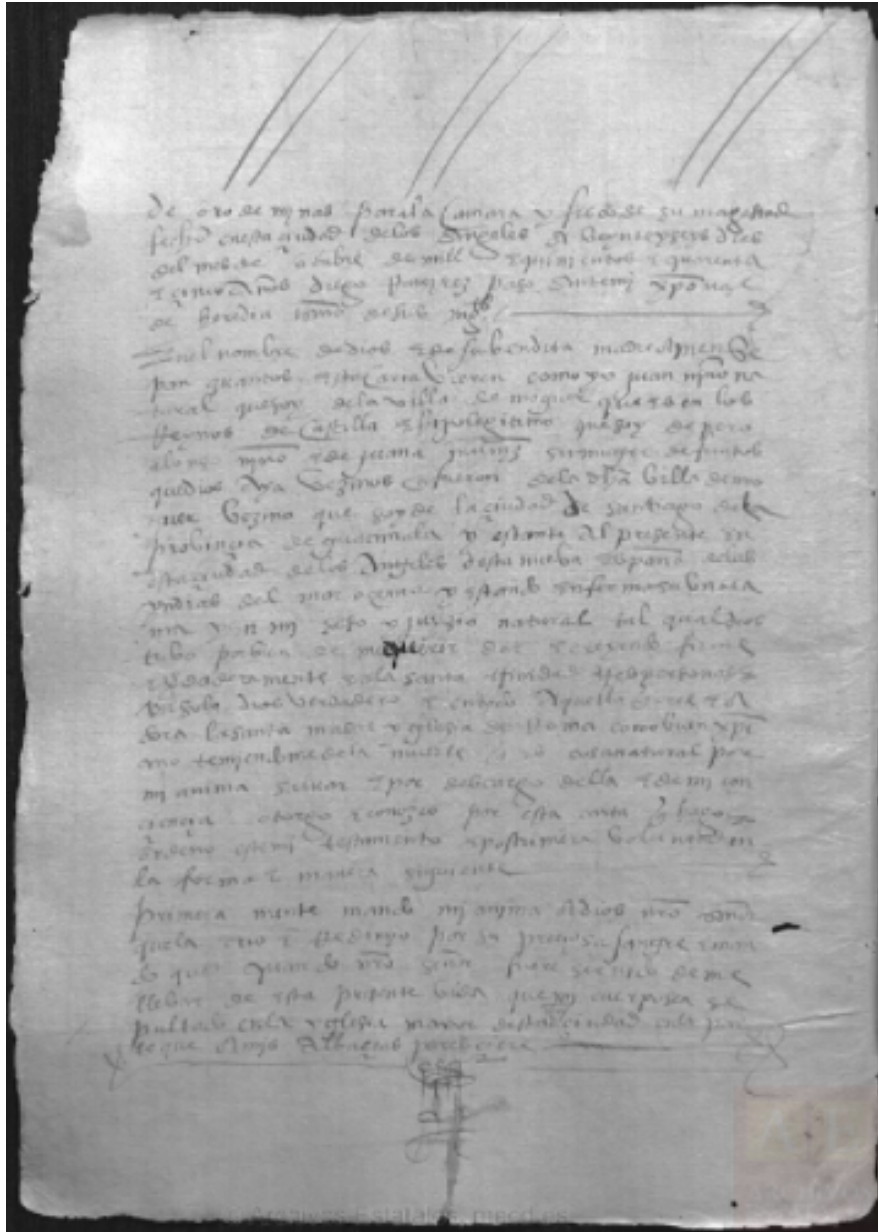 de oro de minas para la camara y fisco de su magestad
fecho en esta ciudad de los Angeles a veynte y seys dias
del mes de otubre de mill e quinientos e quarenta
e cinco Años diego Ramirez paso Ante mi xpoval
de heredia scrivano de sus mgs
En el nombre de dios e de su bendita madre Amen Se
pan quantos esta Carta Vieren como yo juan nyño na
tural que soy de la villa de moguer que es en los
Reynos de Castilla e hijo legitimo que soy de pero
alonso nyño e de juana su muger defuntos
que dios Aya Vezinos que fueron de la dha Villa de mo
guer Vezino que soy de la ciudad de santiago de la
provincia de guatimala y estante Al presente en
esta ciudad de los Angeles desta nueva españa de las
yndias del mar oceano y estando enfermo
y en mi seso y juyzio natural tal qual dios
tubo por bien de me querer dar e creyendo firme
e verdaderamente en la santa trinidad tres personas e
un solo dios verdadero e en todo Aquello que tiene
la santa madre yglesia de Roma como buen xpi
ano temiendome de la muerte ques cosa natural por
mi anima salvar e por descargo della e de mi con
ciencia otorgo e conozco por esta carta q hago e
ordeno este mi testamento e postrimera voluntad en
la forma e manera siguiente
primera mente mando mi anima A dios nro señor
que la crio e Redimyo por su preciosa sangre e man
do que quando nro señor fuere servido de me
llebar de esta presente vida que my cuerpo sea se
pultado en la yglesia mayor desta ciudad en la par
te que A mys Albaceas paresciere
www.Archivos Estatales, mecd.es